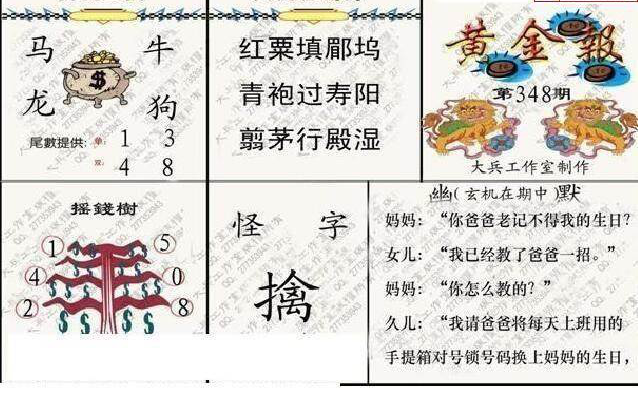 马 牛
龙 狗
尾數提供：单：1 3
双：4 8
$
红粟填郿坞
青袍过寿阳
翦茅行殿湿
黄金報
第348期
大兵工作室制作
摇錢樹
1 5
4 0
2 8
怪 字
擒
幽(玄机在期中)默
妈妈：“你爸爸老记不得我的生日？
女儿：“我已经教了爸爸一招。”
妈妈：“你怎么教的？”
久儿：“我请爸爸将每天上班用的
手提箱对号锁号码换上妈妈的生日，